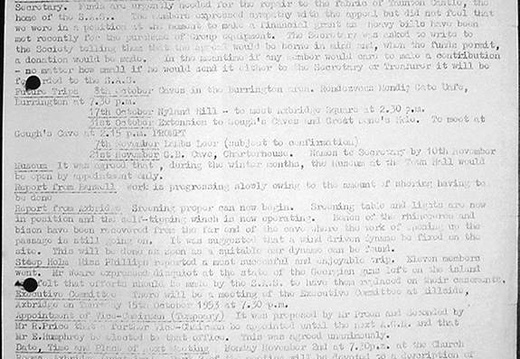 Secretary. Funds are urgently needed for the repair to the fabric of Taunton Castle, the
home of the S.A.S.. The members expressed sympathy with the appeal but did not feel that
we were in a position at the moment to make a financial grant as heavy bills have been
met recently for the purchase of Group equipment. The Secretary was asked to write to
the Society telling them that the appeal would be borne in mind and, when the funds permit,
a donation would be made. In the meantime if any member would care to make a contribution
- no matter how small if he would send it either to the Secretary or Treasurer it will be
to the S.A.S.
Future Trips 8th October Caves in the Burrington area. Rendezvous Mendip Gate Cafe,
Burrington at 7.30 p.m.
17th October Nyland Hill - to meet Axbridge Square at 2.30 p.m.
31st October Extension to Gough's Caves and Great Hole. To meet at
Gough's Cave at 2.15 p.m. PROMPT
7th November Lambs Leer (subject to confirmation)
21st November G.B. Cave, Charterhouse. Names to Secretary by 10th November
Museum It was agreed that, during the winter months, the Museum at the Town Hall would
be open by appointment only.
Report from work is progressing slowly owing to the amount of shoring having to
be done
Report from Axbridge Screening proper can now begin. Screening table and lights are now
in position and the self-tipping winch is now operating. Bones of the rhinoceros and
bison have been recovered from the far end of the cave where the work of opening up the
passage is still going on. It was suggested that a wind driven dynamo be fixed on the
site. This will be done as soon as a suitable dynamo can be found.
Steep Holm Miss Phillips reported a most successful and enjoyable trip. Eleven members
went. Mr Weare expressed disquiet at the state of the Georgian guns left on the island
felt that efforts should be made by the S.A.S. to have them replaced on their casements.
Executive Committee There will be a meeting of the Executive Committee at Hillside,
Axbridge on 15th October 1953 at 7.30 p.m.
Appointment of Vice-Chairman (Temporary) It was proposed by Mr and seconded by
Mr R.Price that a further Vice-Chairman be appointed until the next A.G.M. and that
Mr E.Humphrey be elected to that office. This was agreed unanimously.
Date, Time and Place of Next Meeting Monday November 2nd at 7.30p.m. at the Church